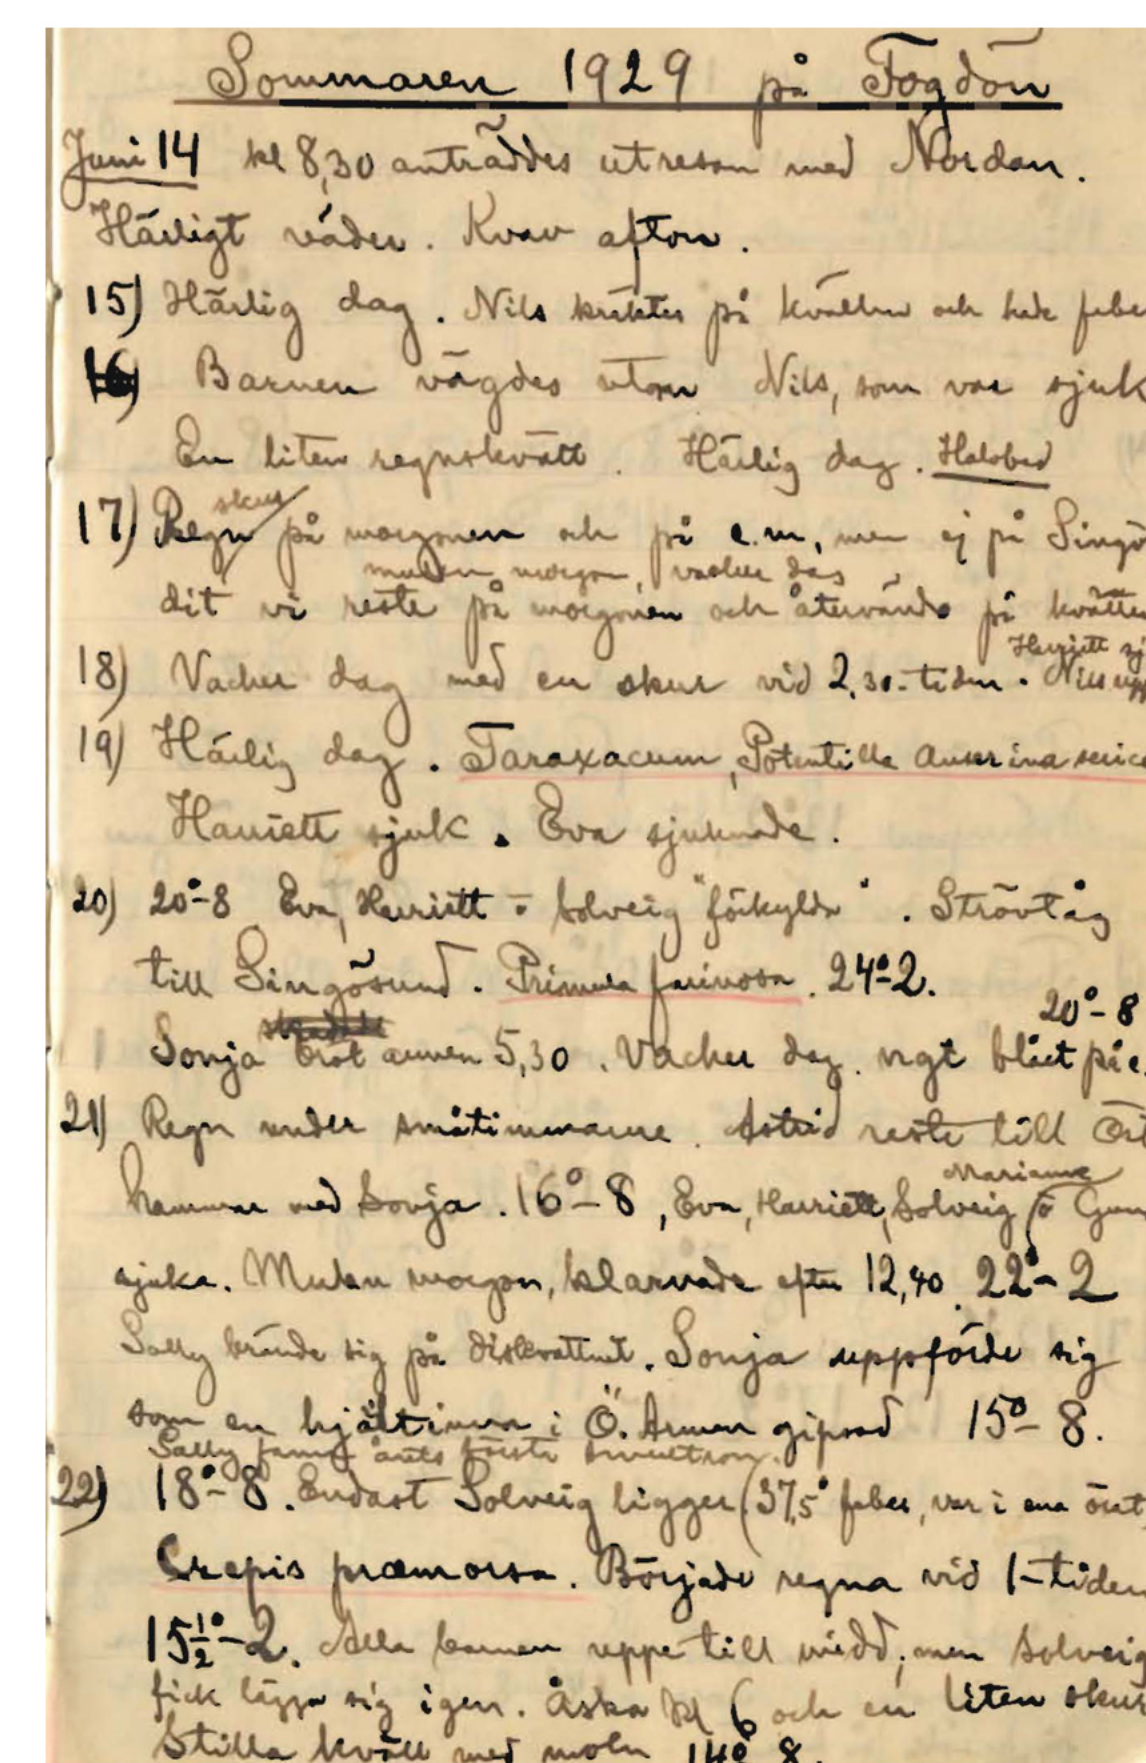 Sommaren 1929 på Fogdön
Juni 14 kl 8,30 anträddes utresan med Nordan.
Härligt väder. Kvav afton.
15) Härlig dag. Nils kräktes på kvällen och hade feber
16) Barnen vägdes utom Nils, som var sjuk
En liten regnskvätt. Härlig dag. Halsbad
skur
17) Regn på morgonen och på e.m, men ej på Singö
mulen morgon, vacker dag
dit vi reste på morgonen och återvände på kvällen
Harriett sj
18) Vacker dag med en skur vid 2,30-tiden. Nils upp
19) Härlig dag. Taraxacum, Potentilla Anserina serice
Harriett sjuk. Eva sjuknade.
20) 20°-8 Eva, Harriett o Solveig "förkylda". Strövtåg
till Singösund. Primula farinosa. 24°-2.
20°-8
Sonja bröt armen 5,30. Vacker dag. ngt blåst på e.
21) Regn under småtimmarne. Astrid reste till Öst
Marianne
hammar med Sonja. 16°-8, Eva, Harriett, Solveig o Gun
sjuka. Mulen morgon, klarnade efter 12,40. 22°-2
Sally brände sig på diskvattnet. Sonja uppförde sig
som en hjältinna i Ö. Armen gipsad 15°-8.
Sally fann årets första smultron.
22) 18°-8. Endast Solveig ligger (37,5° feber, var i ena örat
Crepis præmorsa. Började regna vid 1-tiden
15½°-2. Alla barnen uppe till midd, men Solveig
fick lägga sig igen. Åska kl 6 och en liten skur
Stilla kväll med moln 14°-8.